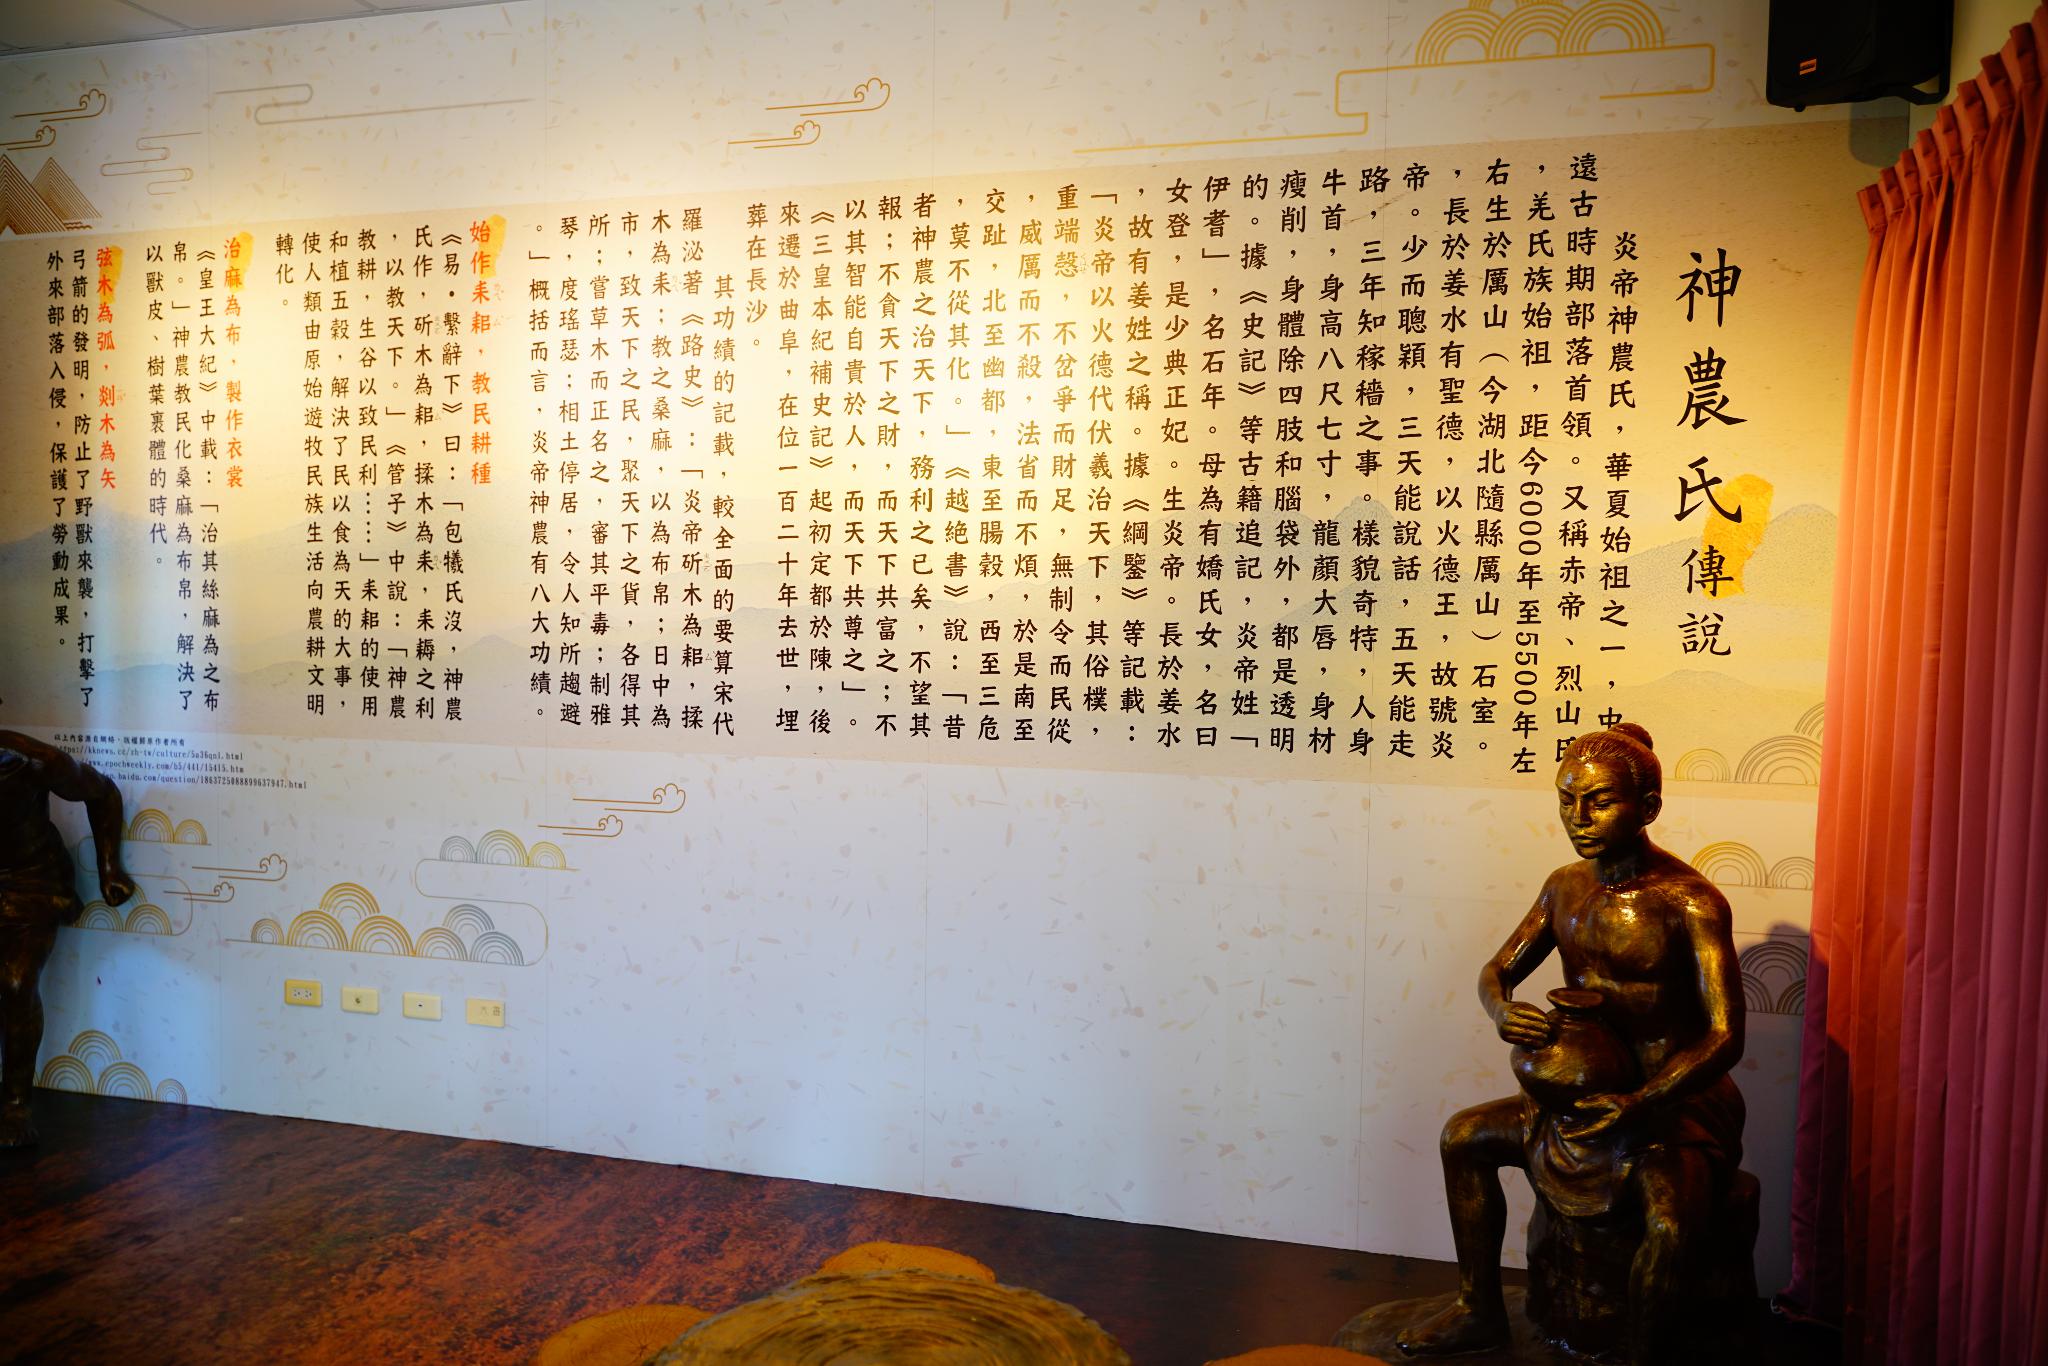 神農氏傳說
炎帝神農氏，華夏始祖之一，中
遠古時期部落首領。又稱赤帝、烈山氏
，羌氏族始祖，距今6000年至5500年左
右生於厲山（今湖北隨縣厲山）石室。
，長於姜水有聖德，以火德王，故號炎
帝。少而聰穎，三天能說話，五天能走
路，三年知稼穡之事。樣貌奇特，人身
牛首，身高八尺七寸，龍顏大唇，身材
瘦削，身體除四肢和腦袋外，都是透明
的。據《史記》等古籍追記，炎帝姓「
伊耆」，名石年。母為有嬌氏女，名曰
女登，是少典正妃。生炎帝。長於姜水
，故有姜姓之稱。據《綱鑒》等記載：
「炎帝以火德代伏羲治天下，其俗樸，
重端愨，不岔爭而財足，無制令而民從
，威厲而不殺，法省而不煩，於是南至
交趾，北至幽都，東至腸穀，西至三危
，莫不從其化。」《越絶書》說：「昔
者神農之治天下，務利之已矣，不望其
報；不貪天下之財，而天下共富之；不
以其智能自貴於人，而天下共尊之」。
《三皇本紀補史記》起初定都於陳，後
來遷於曲阜，在位一百二十年去世，埋
葬在長沙。
其功績的記載，較全面的要算宋代
羅泌著《路史》：「炎帝斫木為耜，揉
木為耒；教之桑麻，以為布帛；日中為
市，致天下之民，聚天下之貨，各得其
所；嘗草木而正名之，審其平毒；制雅
琴，度瑤瑟；相土停居，令人知所趨避
。」概括而言，炎帝神農有八大功績。
始作耒耜，教民耕種
《易•繫辭下》曰：「包犧氏沒，神農
氏作，斫木為耜，揉木為耒，耒耨之利
，以教天下。」《管子》中說：「神農
教耕，生谷以致民利……」耒耜的使用
和植五穀，解決了民以食為天的大事，
使人類由原始遊牧民族生活向農耕文明
轉化。
治麻為布，製作衣裳
《皇王大紀》中載：「治其絲麻為之布
帛。」神農教民化桑麻為布帛，解決了
以獸皮、樹葉裹體的時代。
弦木為弧，剡木為矢
弓箭的發明，防止了野獸來襲，打擊了
外來部落入侵，保護了勞動成果。
以上內容源自網絡，版權歸原作者所有
https://kknews.cc/zh-tw/culture/5a36qnl.html
www.epochweekly.com/b5/441/15415.htm
baidu.com/question/1863725088899637947.html